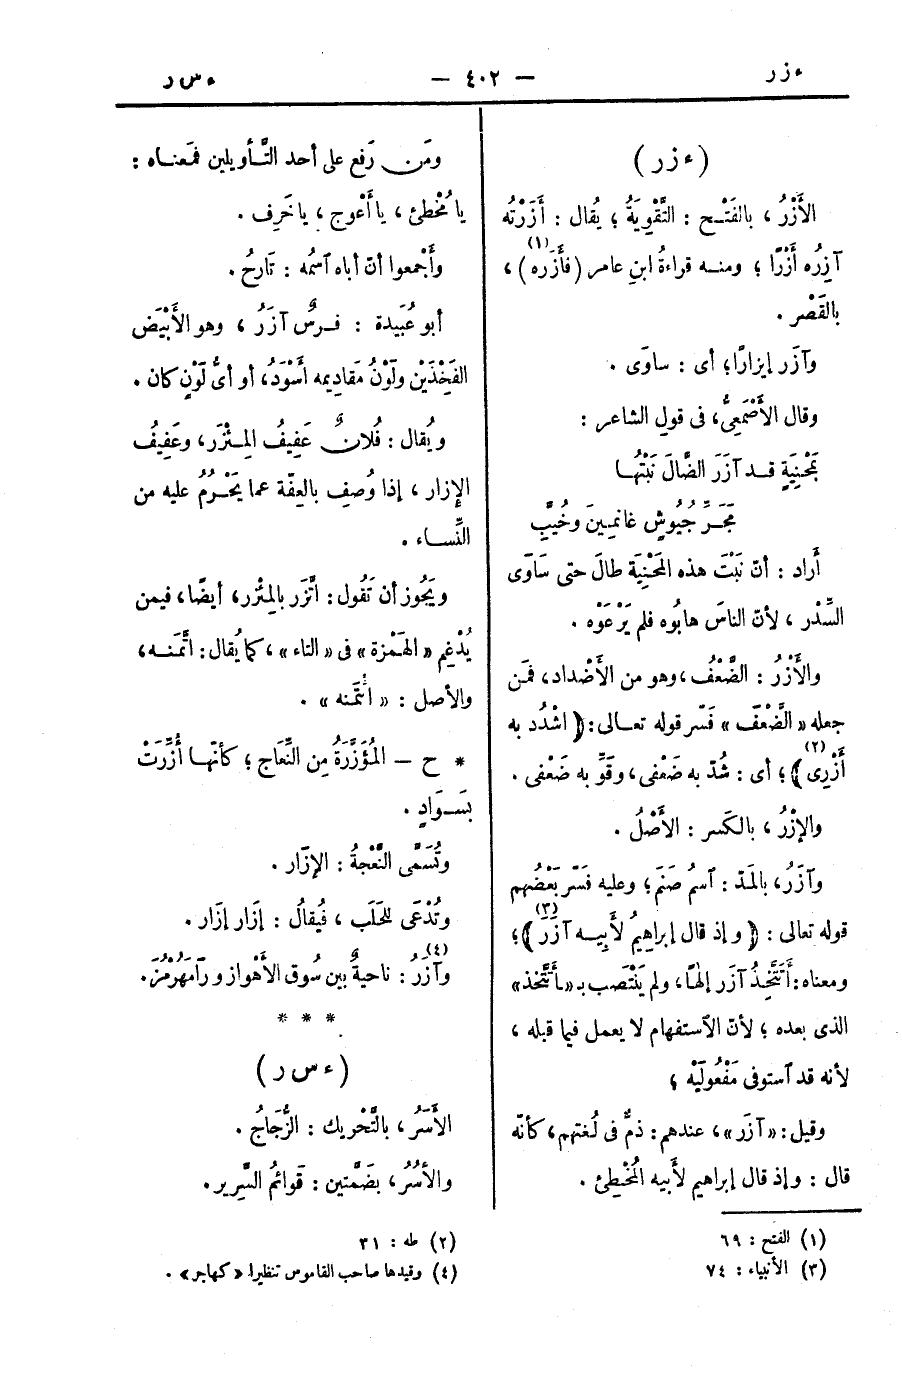 ءزر
— ٤٠٢ —
ءس ر
(ءزر)
الأَزْرُ، بالفَتْح: التَّقْوِيَةُ؛ يُقال: أَزَرْتُه
آزِرُه أَزْرًا؛ ومنه قراءةُ ابنِ عامر (فأَزَره)(١)،
بالقَصْر.
وآزَر إيزارًا؛ أى: ساوَى.
وقال الأَصْمَعِىُّ، فى قولِ الشاعر:
بمَحْنِيَةٍ قد آزَرَ الضَّالَ نَبْتُها
مَجَرِّ جُيُوشٍ غانِمِينَ وخُيَّبِ
أراد: أنّ نَبْتَ هذه المَحْنِيَة طالَ حتى سَاوَى
السِّدْر، لأنّ الناسَ هابُوه فلم يَرْعَوْه.
والأَزْرُ: الضَّعْفُ، وهو من الأَضْداد، فمَن
جعله «الضَّعْفَ» فَسّر قوله تعالى: ﴿اشْدُد به
أَزْرِى﴾(٢)؛ أى: شُدّ به ضَعْفى، وقَوِّ به ضَعْفى.
والإزْرُ، بالكَسر: الأَصْلُ.
وآزَرُ، بالمَدّ: آسمُ صَنَم؛ وعليه فَسّر بَعْضُهم
قوله تعالى: ﴿وإذ قال إبراهِيمُ لأَبِيه آزَرَ﴾(٣)؛
ومعناه: أَتَتَّخِذُ آزَر إلهًا، ولم يَنْتَصِب بـ«أَتتّخذ»
الذى بعده؛ لأنّ الآستفهام لا يعمل فيما قبله،
لأنه قد آستوفى مَفْعُولَيْه؛
وقيل: «آزَر»، عندهم: ذمٌّ فى لُغتهم، كأنّه
قال: وإذ قال إبراهيم لأبيه المُخْطِئ.
ومَن رَفع على أحد التَّأويلين فمَعناه:
يا مُخْطئ، يا أَعْوج، يا خَرِف.
وأَجْمعوا أنّ أباه آسمُه: تَارحُ.
أبو عُبَيدة: فرسٌ آزَرُ، وهو الأَبْيَض
الفَخْذَيْن ولَوْنُ مَقاديمه أَسْوَدُ، أو أىُّ لَوْنٍ كان.
ويُقال: فُلانٌ عَفِيفُ المِئْزَر، وعَفِيفُ
الإزار، إذا وُصِف بالعِفّة عما يَحْرُمُ عليه من
النِّساء.
ويَجُوز أن تَقُول: آتَّزَر بالمِئْزر، أيضًا، فيمن
يُدْغِم «الهَمْزة» فى «التاء»، كما يُقال: آتَّمَنه،
والأصل: «ائْتَمَنه».
* ح — المُؤَزَّرَةُ مِن النِّعاج؛ كأنّها أُزِّرَتْ
بسَوادٍ.
وتُسَمَّى النَّعْجةُ: الإزَار.
وتُدْعَى للحَلَب، فُيقالُ: إزَار إزَار.
وآزَرُ: ناحيةٌ بين سُوق الأَهْواز ورَامَهُرْمُزَ(٤).
* * *
(ءس ر)
الأَسَرُ، بالتَّحْريك: الزُّجَاجُ.
والأُسُرُ، بضَمَّتين: قَوائمُ السَّرِير.
(١) الفتح: ٦٩
(٢) طه: ٣١
(٣) الأنبياء: ٧٤
(٤) وقيدها صاحب القاموس تنظيرا «كهاجر».